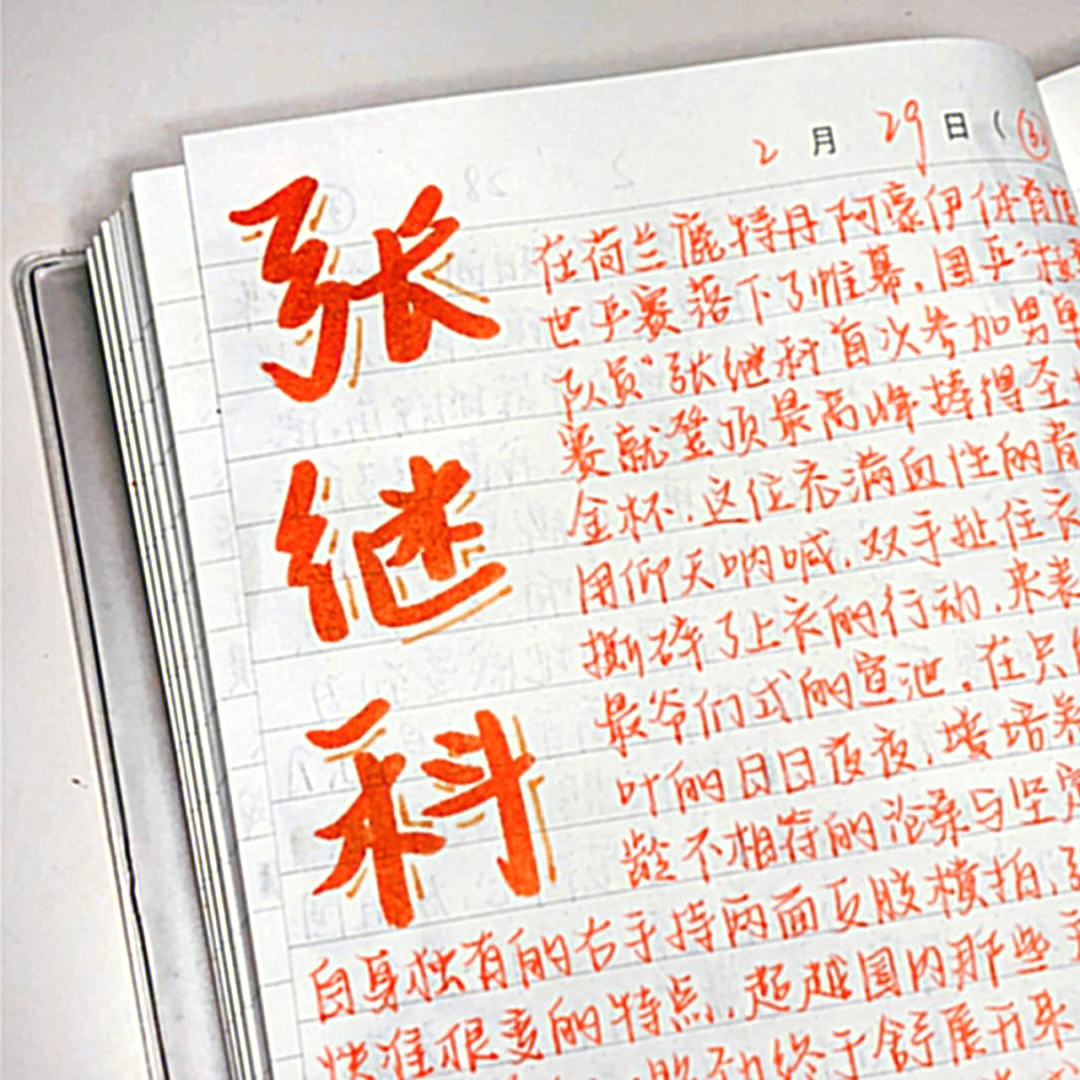 2月29日(
张
继
科
在荷兰鹿特丹阿豪伊体育馆
世乒赛落下了帷幕,国乒"
队员"张继科首次参加男单
赛就登顶最高峰捧得圣
金杯.这位充满血性的青
用仰天呐喊.双手扯住衣
撕碎了上衣的行动.来表
最爷们式的宣泄.在只
叶的日日夜夜.培养
龄不相符的沧桑与坚定
自身独有的右手持两面反胶横拍.
快准狠变的特点.超越国内那些
终于舒展开来